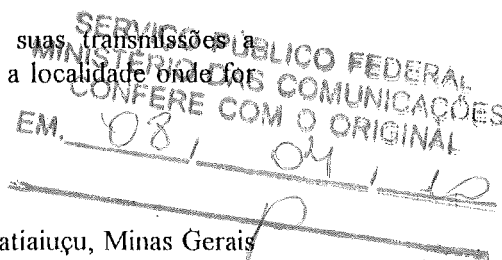 suas transmissões a
a localidade onde for
SERVIÇO PÚBLICO FEDERAL
MINISTÉRIO DAS COMUNICAÇÕES
CONFERE COM O ORIGINAL
EM, 08, 04, 10
atiaiuçu, Minas Gerais